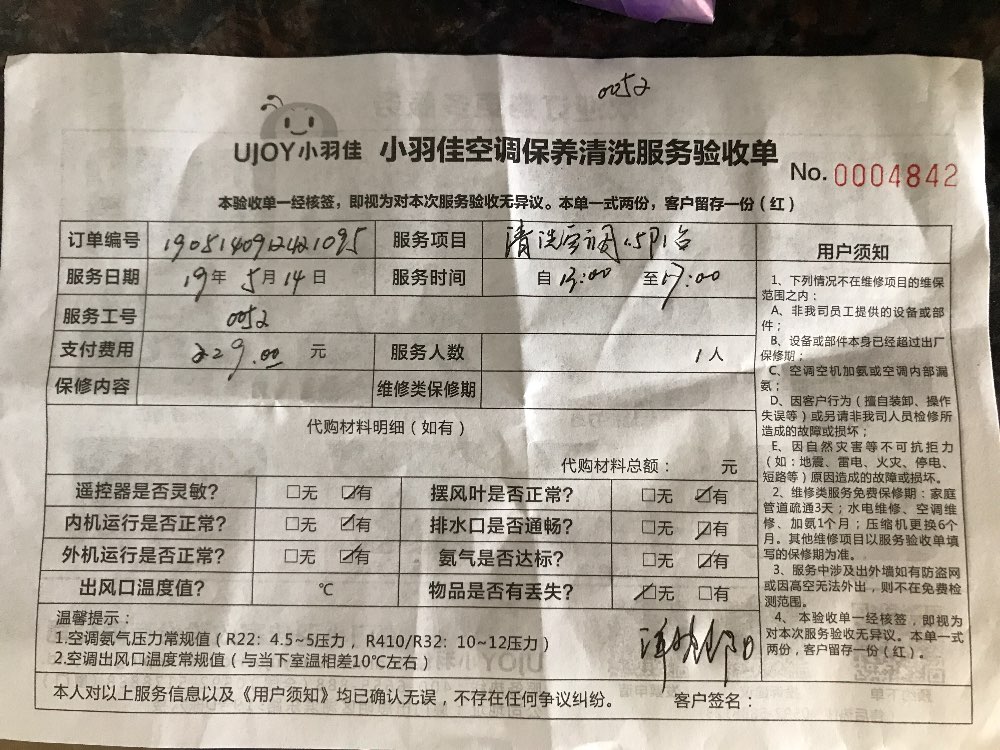 0052
UJOY小羽佳 小羽佳空调保养清洗服务验收单
No. 0004842
本验收单一经核签，即视为对本次服务验收无异议。本单一式两份，客户留存一份（红）
订单编号 1905140912421095 服务项目 清洗空调
服务日期 19年 5月 14日 服务时间 自 13:00 至 17:00
服务工号 0052
支付费用 229.00 元 服务人数 1人
保修内容 维修类保修期
代购材料明细（如有）
代购材料总额： 元
遥控器是否灵敏? □无 ☑有 摆风叶是否正常? □无 ☑有
内机运行是否正常? □无 ☑有 排水口是否通畅? □无 ☑有
外机运行是否正常? □无 ☑有 氨气是否达标? □无 ☑有
出风口温度值? ℃ 物品是否有丢失? ☑无 □有
温馨提示：
1.空调氨气压力常规值（R22：4.5~5压力，R410/R32：10~12压力）
2.空调出风口温度常规值（与当下室温相差10℃左右）
本人对以上服务信息以及《用户须知》均已确认无误，不存在任何争议纠纷。 客户签名：
用户须知
1、下列情况不在维修项目的维保
范围之内：
A、非我司员工提供的设备或部
件；
B、设备或部件本身已经超过出厂
保修期；
C、空调空机加氨或空调内部漏
氨；
D、因客户行为（擅自装卸、操作
失误等）或另请非我司人员检修所
造成的故障或损坏；
E、因自然灾害等不可抗拒力
（如：地震、雷电、火灾、停电、
短路等）原因造成的故障或损坏。
2、维修类服务免费保修期：家庭
管道疏通3天；水电维修、空调维
修、加氨1个月；压缩机更换6个
月。其他维修项目以服务验收单填
写的保修期为准。
3、服务中涉及出外墙如有防盗网
或因高空无法外出，则不在免费检
测范围。
4、本验收单一经核签，即视为
对本次服务验收无异议。本单一式
两份，客户留存一份（红）。